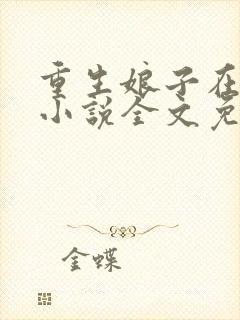 重生娘子在
小说全文免
金蝶